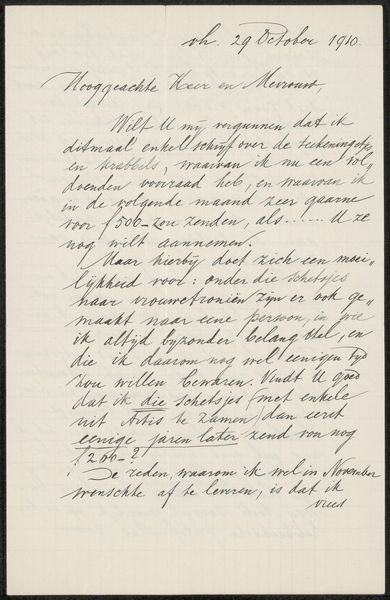 vh. 29 October 1910.
Hooggeachte Heer en Mevrouw,
Wilt U mij vergunnen dat ik
ditmaal enkel schrijf over de teekeningetjes
en krabbels, waarvan ik nu een vol-
doenden voorraad heb, en waarvan ik
in de volgende maand zeer gaarne
voor f 500- zou zenden, als...... U ze
nog wilt aannemen.
Maar hierbij doet zich een moei-
lijkheid voor: onder die schetsjes
naar vrouwetroniën zijn er ook ge-
maakt naar eene persoon, in wie
ik altijd byzonder belang stel, en
die ik daarom nog wel eenigen tijd
zou willen bewaren. Vindt U goed
dat ik die schetsjes (met enkele
uit Artis te zamen) dan eerst
eenige jaren later zend voor nog
f 200-?
De reden, waarom ik wel in November
wenschte af te leveren, is dat ik
vrees